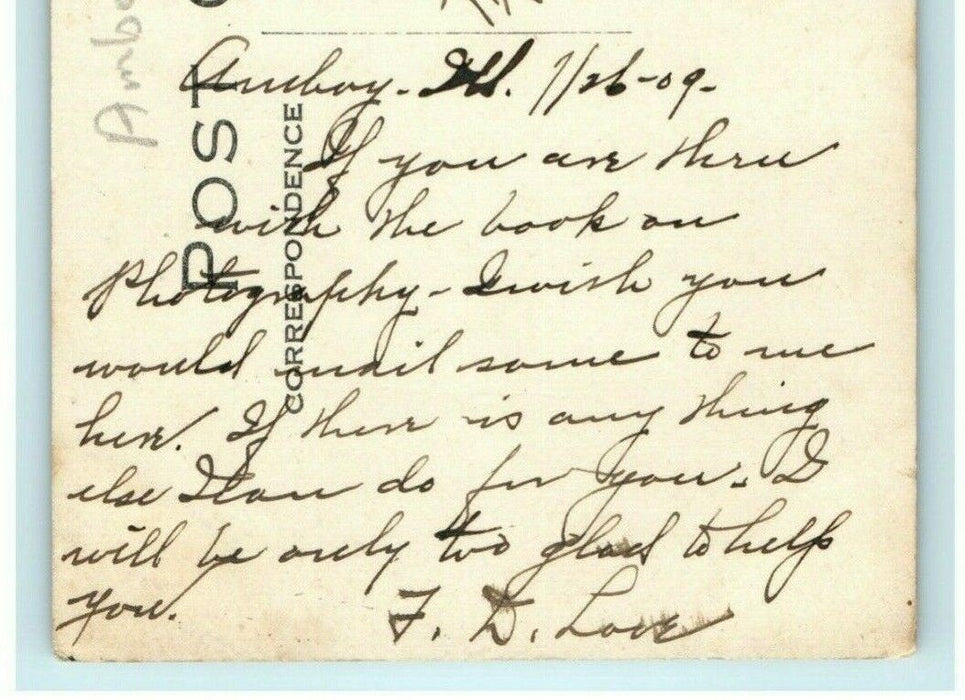 Amboy. Ill. 1/26-09.
If you are thru
with the book on
Photography - I wish you
would mail same to me
here. If there is any thing
else I can do for you. I
will be only too glad to help
you. F. D. Love
POST
CORRESPONDENCE
Ambo